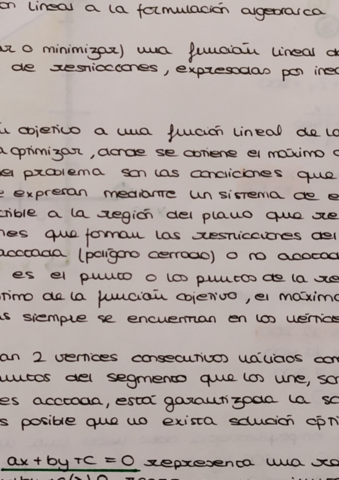 on lineal a la formulación algebraica
ar o minimizar) una función lineal d
de restricciones, expresadas por ine
objetivo a una función lineal de lo
a optimizar, donde se obtiene el máximo o
el problema son las condiciones que
e expresan mediante un sistema de e
cible a la región del plano que re
nes que forman las restricciones del
acotada (polígono cerrado) o no acotad
es el punto o los puntos de la re
timo de la función objetivo, el máximo
as siempre se encuentran en los vértice
an 2 vértices consecutivos válidos com
untos del segmento que los une, so
es acotada, está garantizada la so
s posible que no exista solución ópti
ax + by + c = 0 representa una re